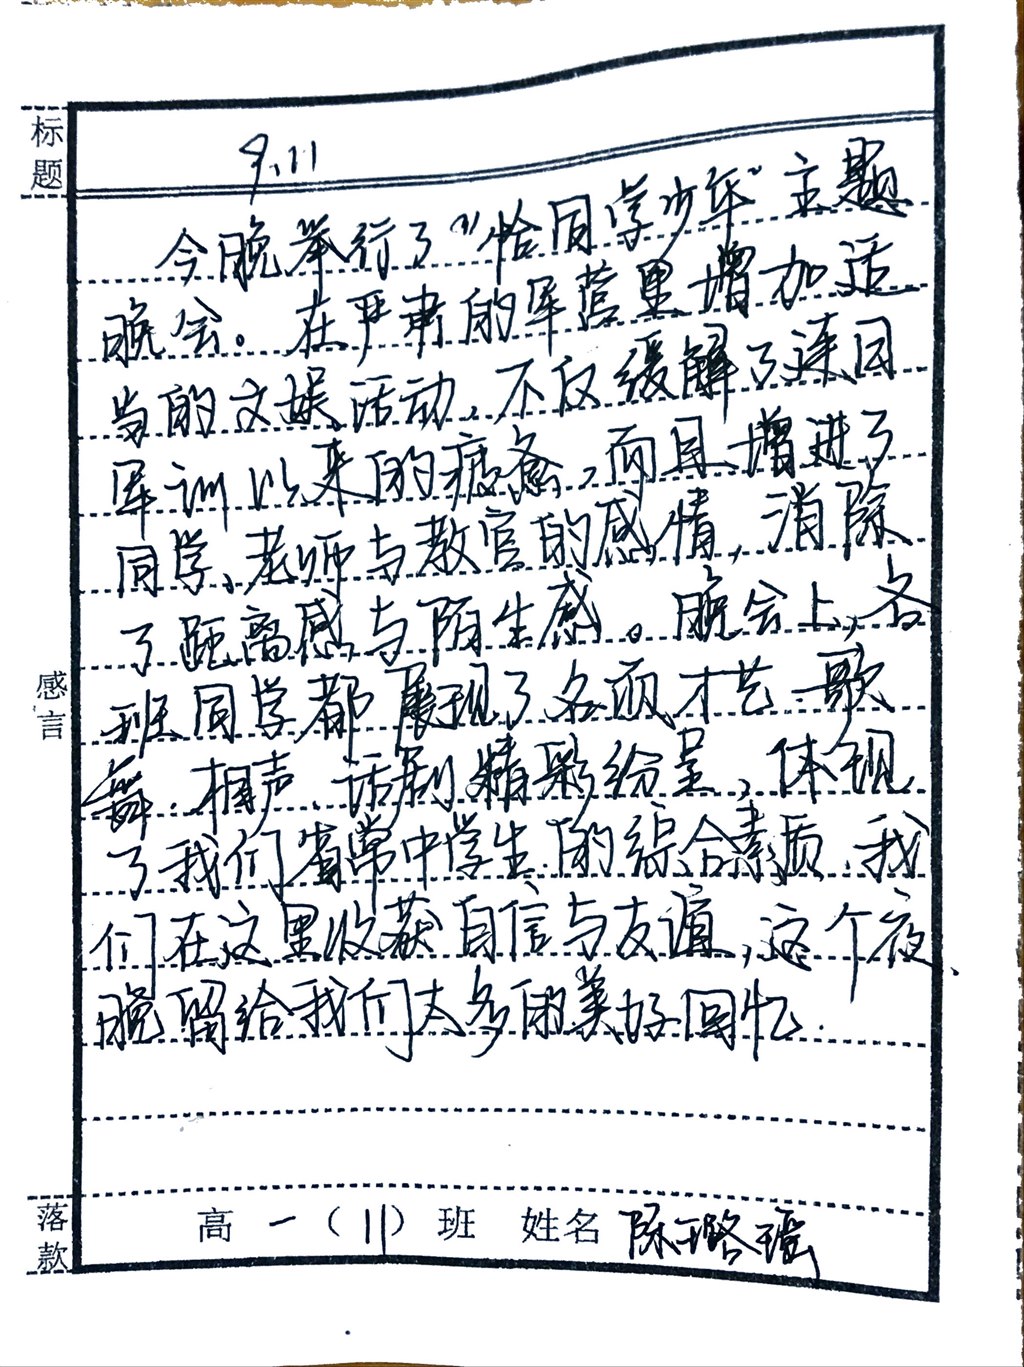 标题
9.11
今晚举行了“恰同学少年”主题
晚会。在严肃的军营里增加适
当的文娱活动，不仅缓解了连日
军训以来的疲惫，而且增进了
同学、老师与教官的感情，消除
了距离感与陌生感。晚会上，各
班同学都展现了各项才艺，歌
舞、相声、话剧精彩纷呈，体现
了我们省常中学生的综合素质，我
们在这里收获自信与友谊，这个夜
晚留给我们太多的美好回忆.
感言
落款
高一（11）班 姓名 陈璐瑶